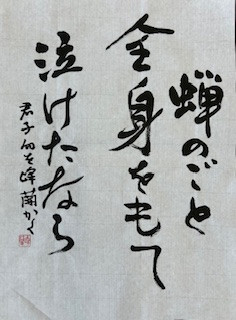 蝉のごと
全身をもて
泣けたなら
君子の句を 峰蘭かく